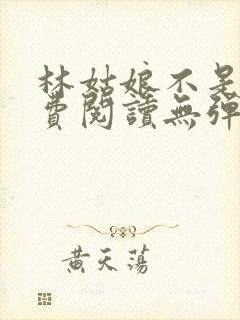 林姑娘不是
費閱讀無彈
黃天蕩